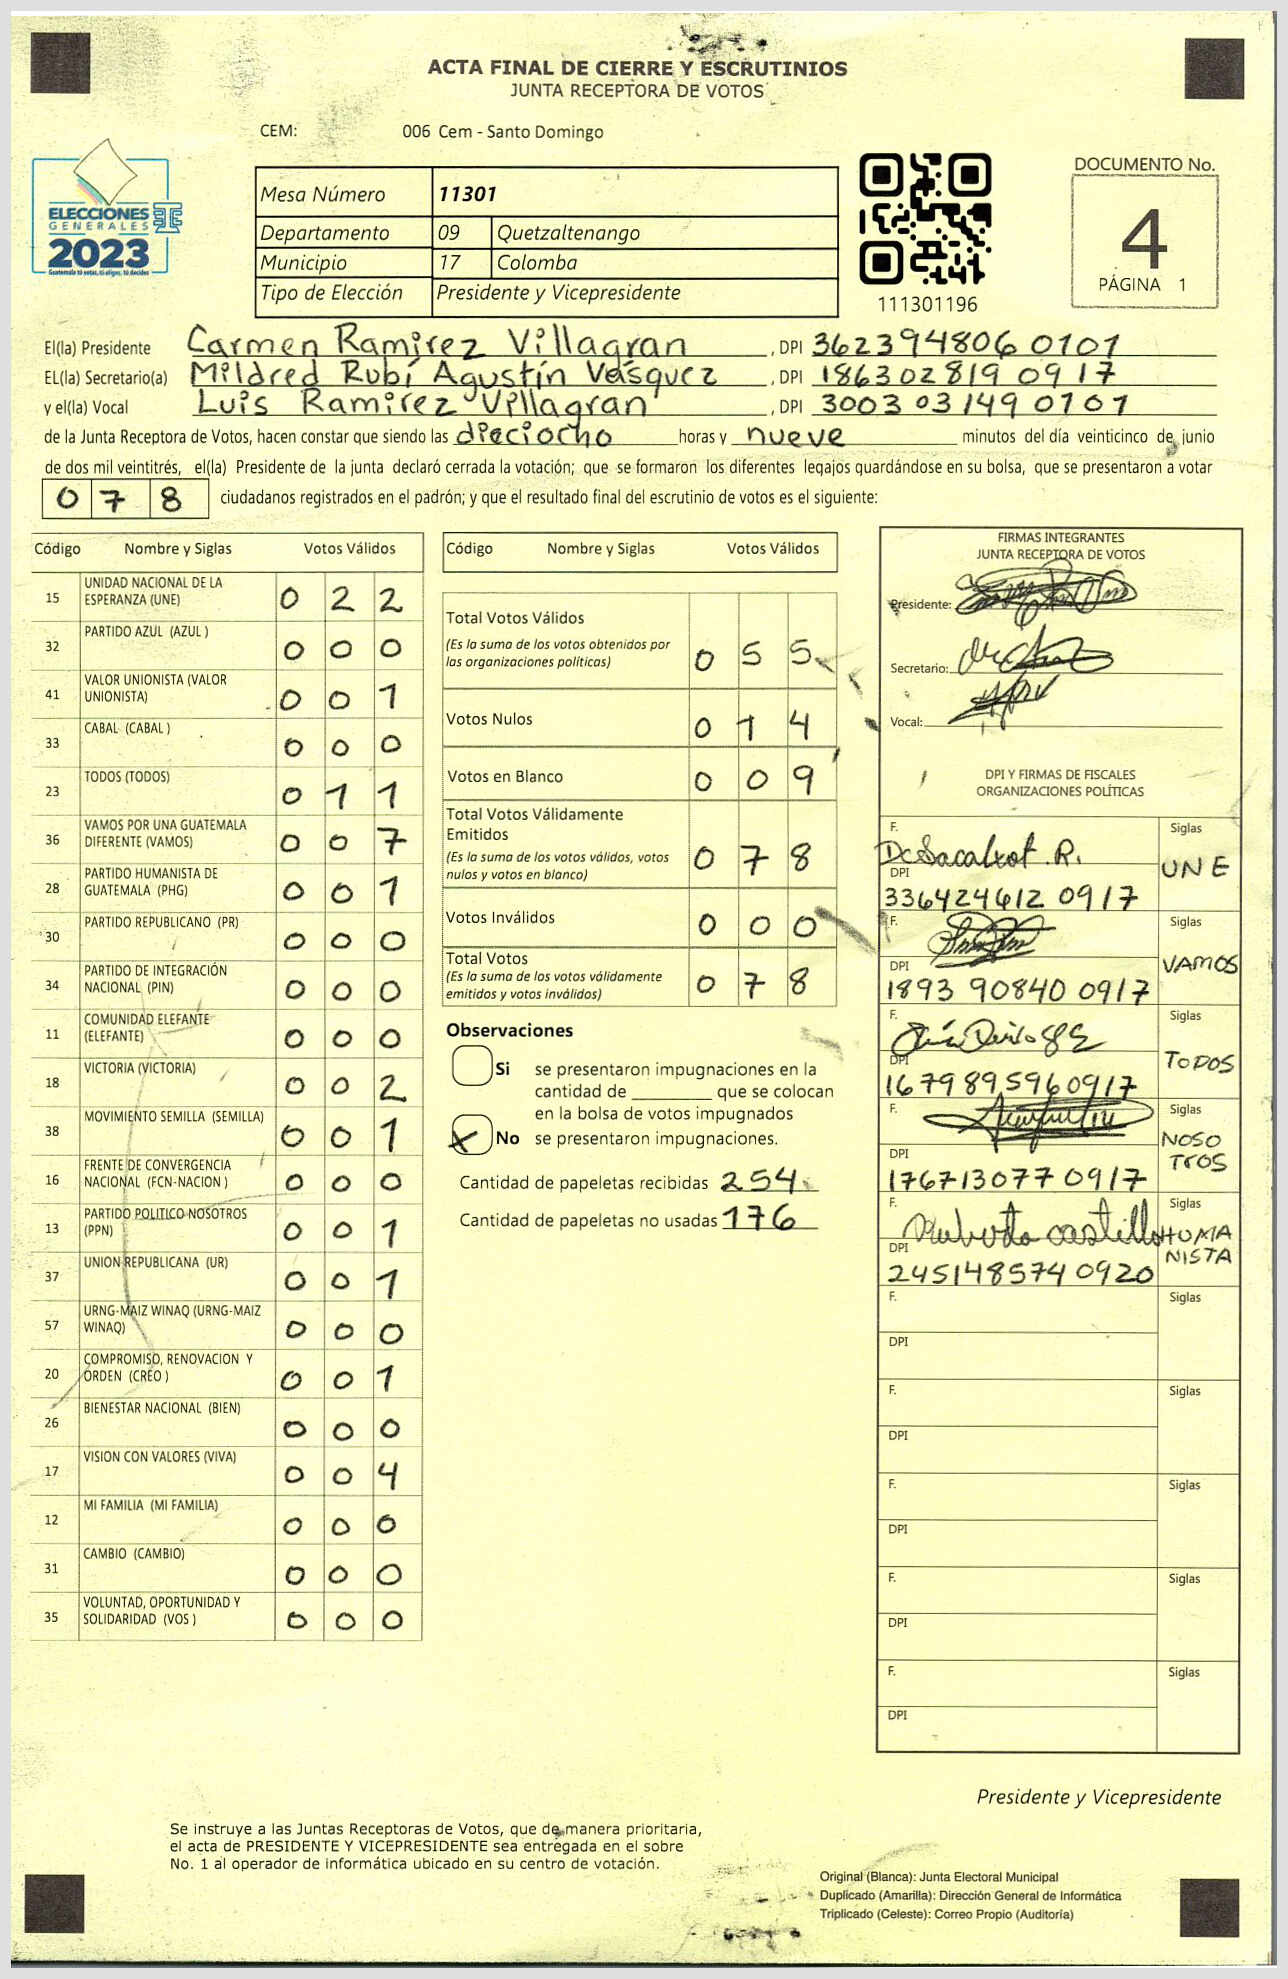 ACTA FINAL DE CIERRE Y ESCRUTINIOS
JUNTA RECEPTORA DE VOTOS
CEM: 006 Cem - Santo Domingo
ELECCIONES
GENERALES
2023
Guatemala tú votas, tú eliges, tú decides
Mesa Número 11301
Departamento 09 Quetzaltenango
Municipio 17 Colomba
Tipo de Elección Presidente y Vicepresidente
111301196
DOCUMENTO No.
4
PÁGINA 1
El(la) Presidente Carmen Ramirez Villagran, DPI 362394806 0101
EL(la) Secretario(a) Mildred Rubí Agustín Vásquez, DPI 186302819 0917
y el(la) Vocal Luis Ramirez Villagran, DPI 300303149 0101
de la Junta Receptora de Votos, hacen constar que siendo las dieciocho horas y nueve minutos del día veinticinco de junio
de dos mil veintitrés, el(la) Presidente de la junta declaró cerrada la votación; que se formaron los diferentes legajos guardándose en su bolsa, que se presentaron a votar
0 7 8 ciudadanos registrados en el padrón; y que el resultado final del escrutinio de votos es el siguiente:
Código Nombre y Siglas Votos Válidos
15 UNIDAD NACIONAL DE LA ESPERANZA (UNE) 0 2 2
32 PARTIDO AZUL (AZUL ) 0 0 0
41 VALOR UNIONISTA (VALOR UNIONISTA) 0 0 1
33 CABAL (CABAL ) 0 0 0
23 TODOS (TODOS) 0 1 1
36 VAMOS POR UNA GUATEMALA DIFERENTE (VAMOS) 0 0 7
28 PARTIDO HUMANISTA DE GUATEMALA (PHG) 0 0 1
30 PARTIDO REPUBLICANO (PR) 0 0 0
34 PARTIDO DE INTEGRACIÓN NACIONAL (PIN) 0 0 0
11 COMUNIDAD ELEFANTE (ELEFANTE) 0 0 0
18 VICTORIA (VICTORIA) 0 0 2
38 MOVIMIENTO SEMILLA (SEMILLA) 0 0 1
16 FRENTE DE CONVERGENCIA NACIONAL (FCN-NACION ) 0 0 0
13 PARTIDO POLITICO NOSOTROS (PPN) 0 0 1
37 UNION REPUBLICANA (UR) 0 0 1
57 URNG-MAIZ WINAQ (URNG-MAIZ WINAQ) 0 0 0
20 COMPROMISO, RENOVACION Y ORDEN (CREO ) 0 0 1
26 BIENESTAR NACIONAL (BIEN) 0 0 0
17 VISION CON VALORES (VIVA) 0 0 4
12 MI FAMILIA (MI FAMILIA) 0 0 0
31 CAMBIO (CAMBIO) 0 0 0
35 VOLUNTAD, OPORTUNIDAD Y SOLIDARIDAD (VOS ) 0 0 0
Código Nombre y Siglas Votos Válidos
Total Votos Válidos
(Es la suma de los votos obtenidos por las organizaciones políticas) 0 5 5
Votos Nulos 0 1 4
Votos en Blanco 0 0 9
Total Votos Válidamente Emitidos
(Es la suma de los votos válidos, votos nulos y votos en blanco) 0 7 8
Votos Inválidos 0 0 0
Total Votos
(Es la suma de los votos válidamente emitidos y votos inválidos) 0 7 8
Observaciones
Si se presentaron impugnaciones en la
cantidad de ________ que se colocan
en la bolsa de votos impugnados
X No se presentaron impugnaciones.
Cantidad de papeletas recibidas 254
Cantidad de papeletas no usadas 176
FIRMAS INTEGRANTES
JUNTA RECEPTORA DE VOTOS
Presidente:
Secretario:
Vocal:
DPI Y FIRMAS DE FISCALES
ORGANIZACIONES POLÍTICAS
F. Siglas
UNE
DPI
336424612 0917
F. Siglas
VAMOS
DPI
1893 90840 0917
F. Siglas
TODOS
DPI
1679895960917
F. Siglas
NOSO
TROS
DPI
176713077 0917
F. Siglas
castillo
HUMA
NISTA
DPI
245148574 0920
F. Siglas
DPI
F. Siglas
DPI
F. Siglas
DPI
F. Siglas
DPI
F. Siglas
DPI
Presidente y Vicepresidente
Se instruye a las Juntas Receptoras de Votos, que de manera prioritaria,
el acta de PRESIDENTE Y VICEPRESIDENTE sea entregada en el sobre
No. 1 al operador de informática ubicado en su centro de votación.
Original (Blanca): Junta Electoral Municipal
Duplicado (Amarilla): Dirección General de Informática
Triplicado (Celeste): Correo Propio (Auditoría)